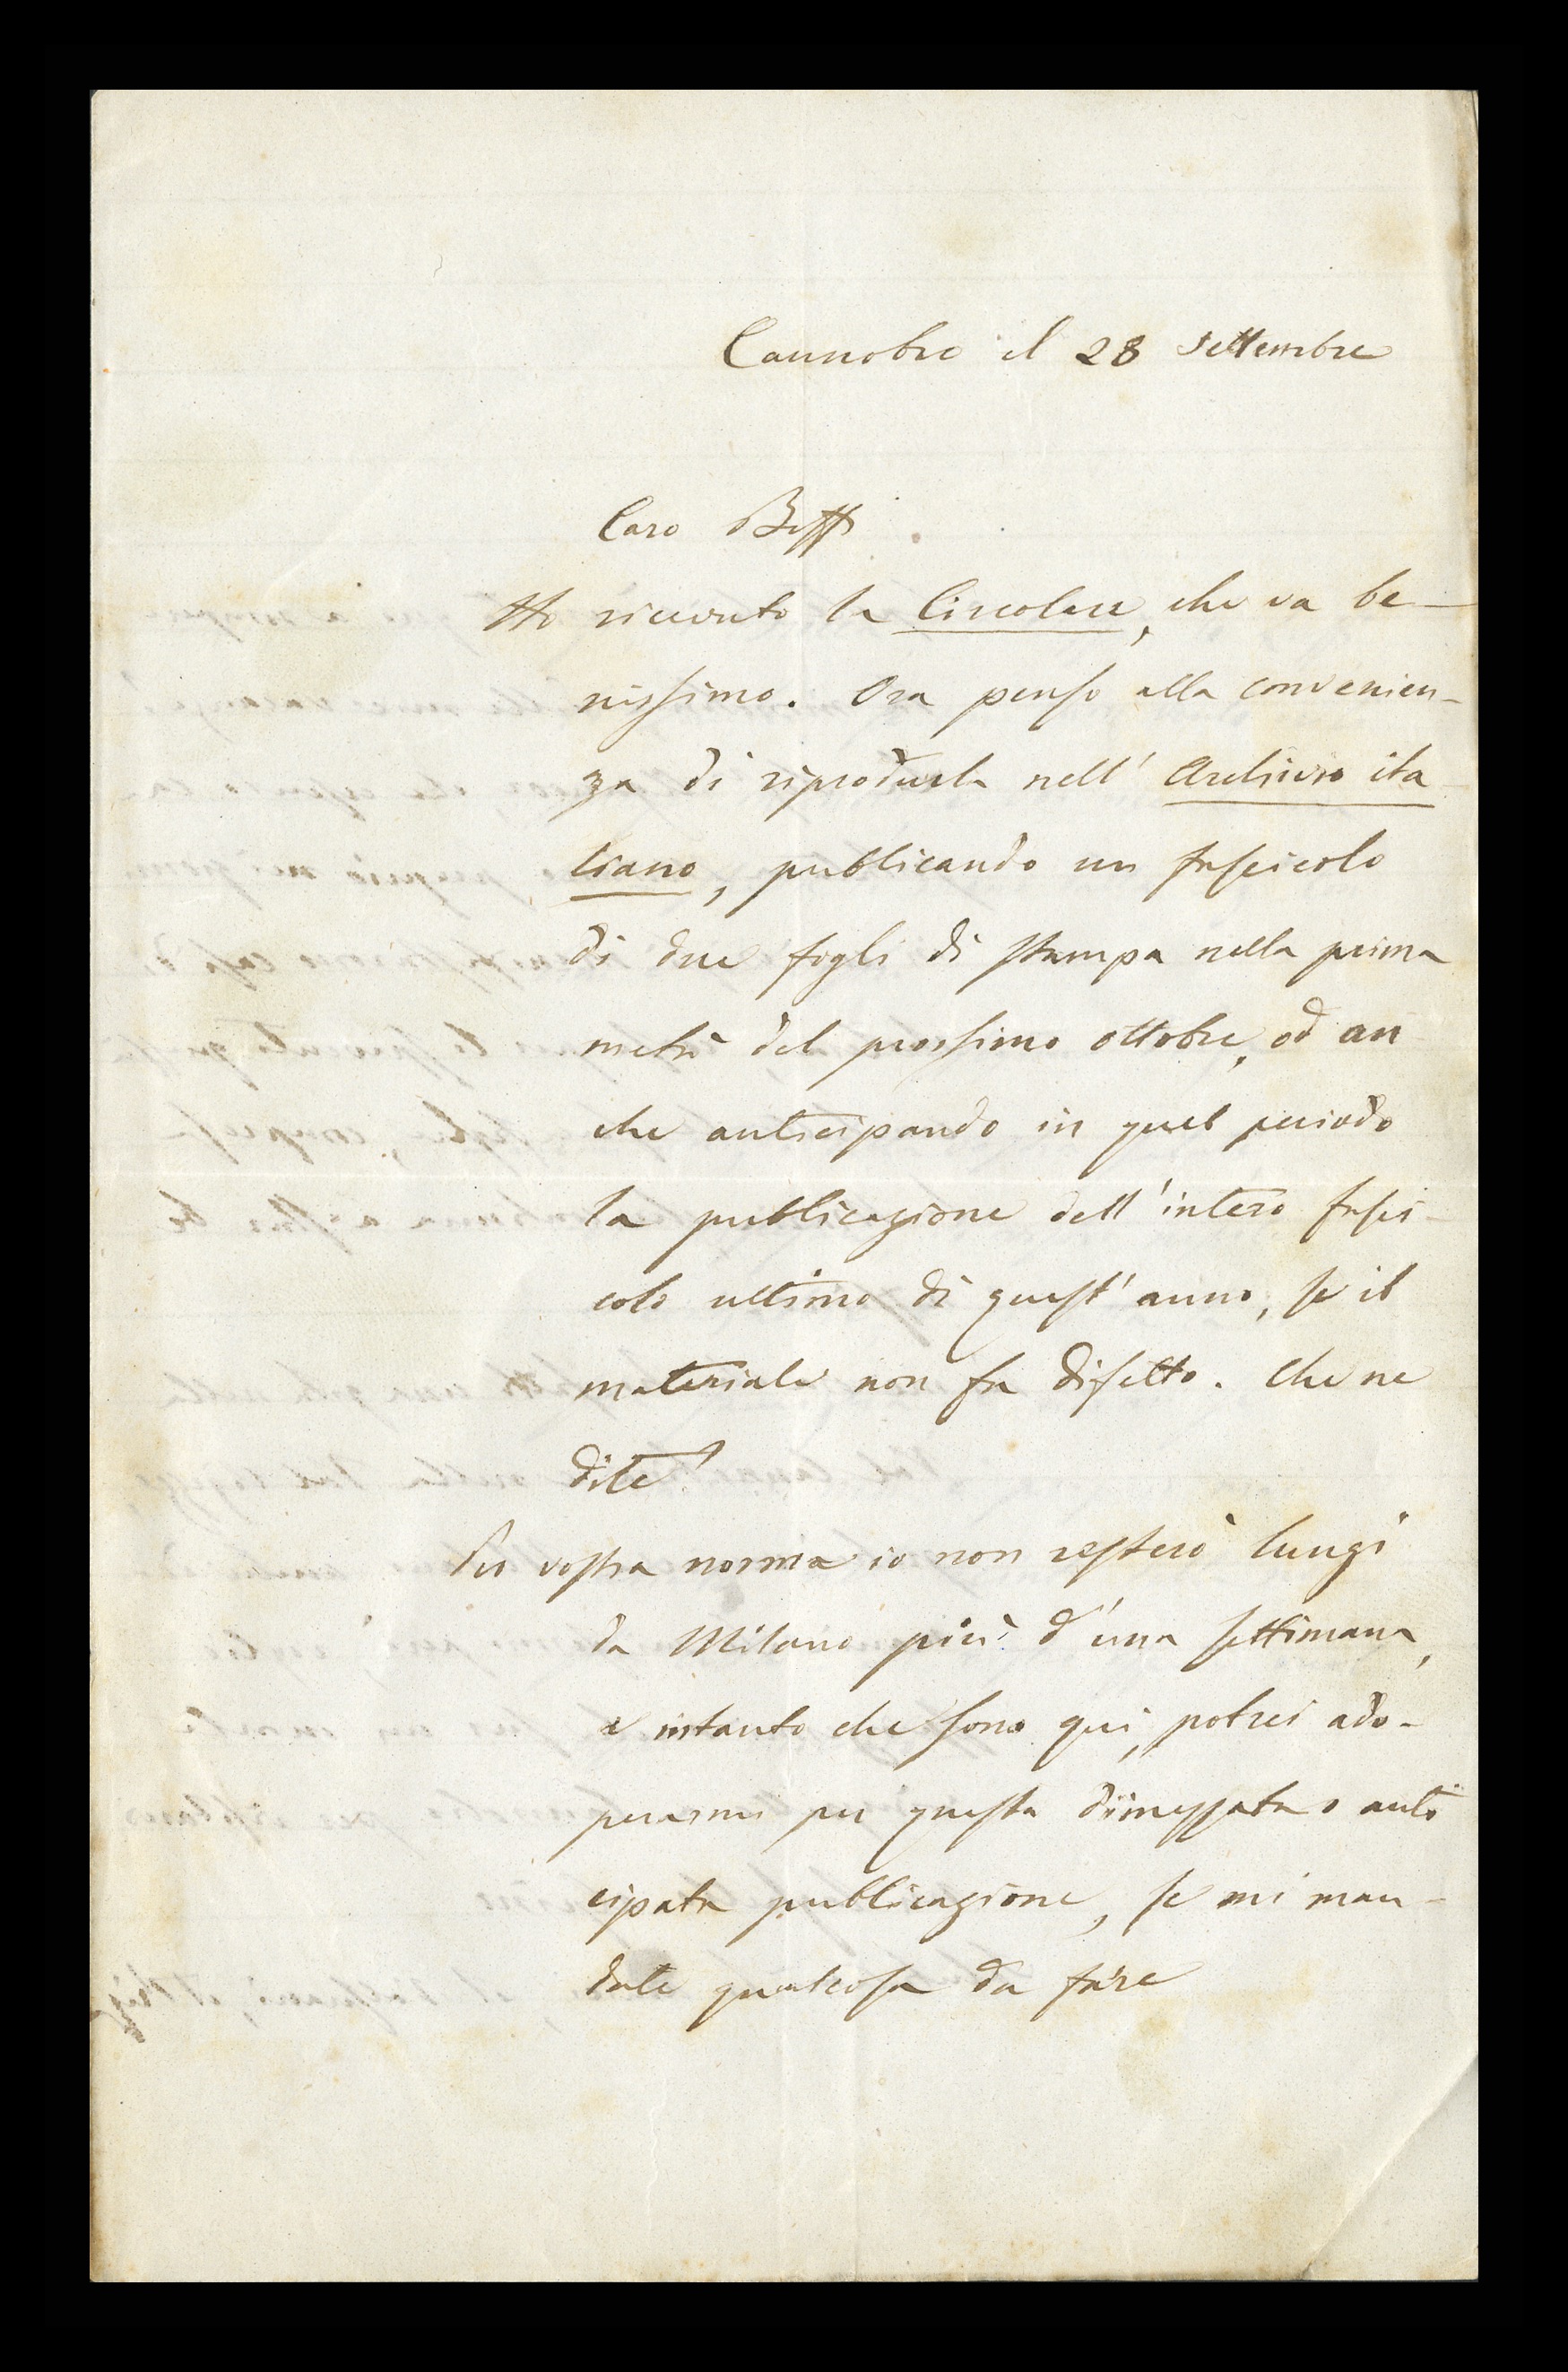 Cannobio il 28 Settembre
Caro Biffi
Ho ricevuto la Circolare, che va be-
nissimo. Ora penso alla convenien-
za di riprodurla nell' Archivio ita
liano, publicando un fascicolo
di due fogli di stampa nella prima
metà del prossimo ottobre, od an
che anticipando in quel periodo
la publicazione dell'intero fasci-
colo ultimo di quest'anno, se il
materiale non fa difetto. Che ne
dite?
Per vostra norma io non resterò lungi
da Milano più d'una settimana,
e intanto che sono qui, potrei ado-
perarmi per questa dimezzata o anti
cipata publicazione, se mi man-
date qualcosa da fare